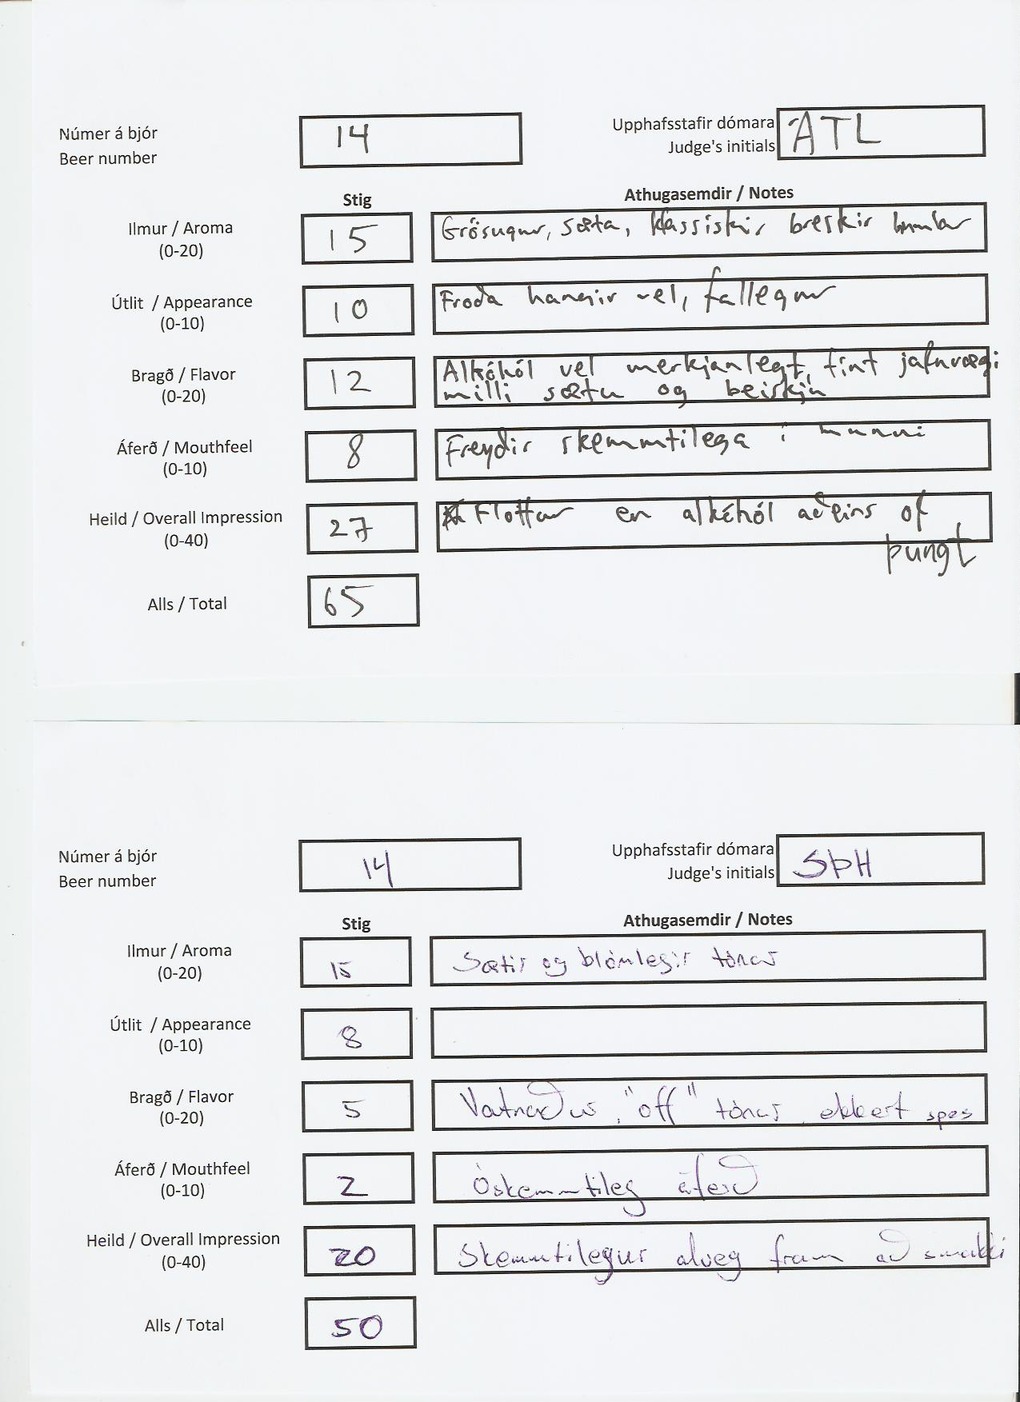 Númer á bjór
Beer number
14
Upphafsstafir dómara
Judge's initials
ÁTL
Stig
Athugasemdir / Notes
Ilmur / Aroma
(0-20)
15
Grösugur, sæta, klassískir breskir humlar
Útlit / Appearance
(0-10)
10
Froða hangir vel, fallegur
Bragð / Flavor
(0-20)
12
Alkóhól vel merkjanlegt, fínt jafnvægi
milli sætu og beiskju
Áferð / Mouthfeel
(0-10)
8
Freyðir skemmtilega í munni
Heild / Overall Impression
(0-40)
27
Flottur en alkóhól aðeins of
þungt
Alls / Total
65
Númer á bjór
Beer number
14
Upphafsstafir dómara
Judge's initials
SÞH
Stig
Athugasemdir / Notes
Ilmur / Aroma
(0-20)
15
Sætir og blómlegir tónar
Útlit / Appearance
(0-10)
8
Bragð / Flavor
(0-20)
5
Vatnaður, "off" tónar, ekkert spes
Áferð / Mouthfeel
(0-10)
2
Óskemmtileg áferð
Heild / Overall Impression
(0-40)
20
Skemmtilegur alveg fram að smakki
Alls / Total
50